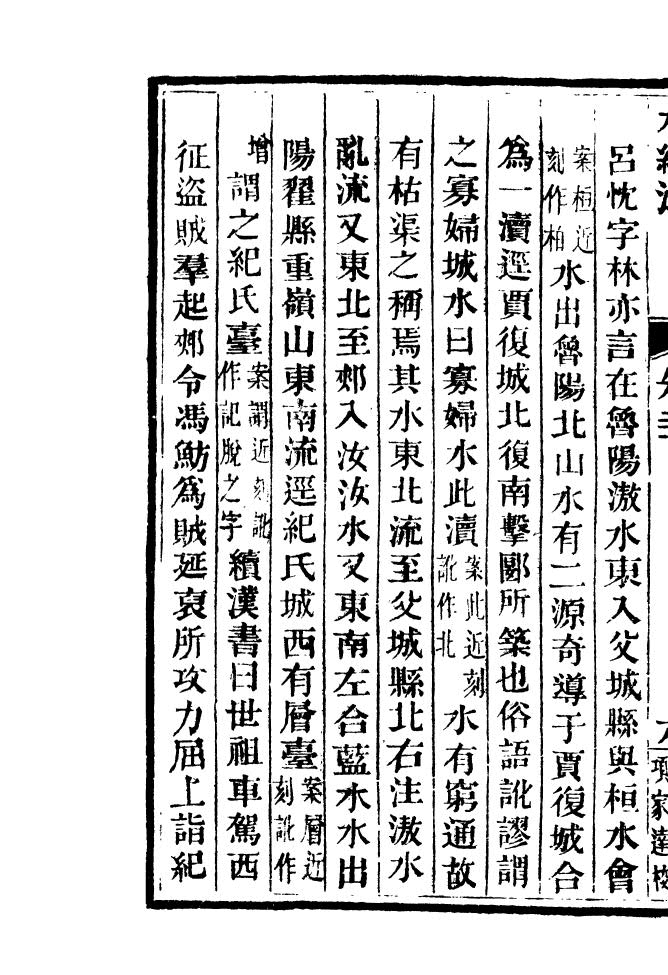 水經注
卷
項家達校
呂忱字林亦言在魯陽滶水東入父城縣與桓水會
案桓近刻作柏水出魯陽北山水有二源奇導于賈復城合
爲一瀆逕賈復城北復南擊郾所築也俗語訛謬謂
之寡婦城水曰寡婦水此瀆案此近刻訛作北水有窮通故
有枯渠之稱焉其水東北流至父城縣北右注滶水
亂流又東北至郟入汝汝水又東南左合藍水水出
陽翟縣重嶺山東南流逕紀氏城西有層臺案層近刻訛作
增謂之紀氏臺案謂近刻訛作記脫之字續漢書曰世祖車駕西
征盜賊羣起郟令馮魴爲賊延裒所攻力屈上詣紀